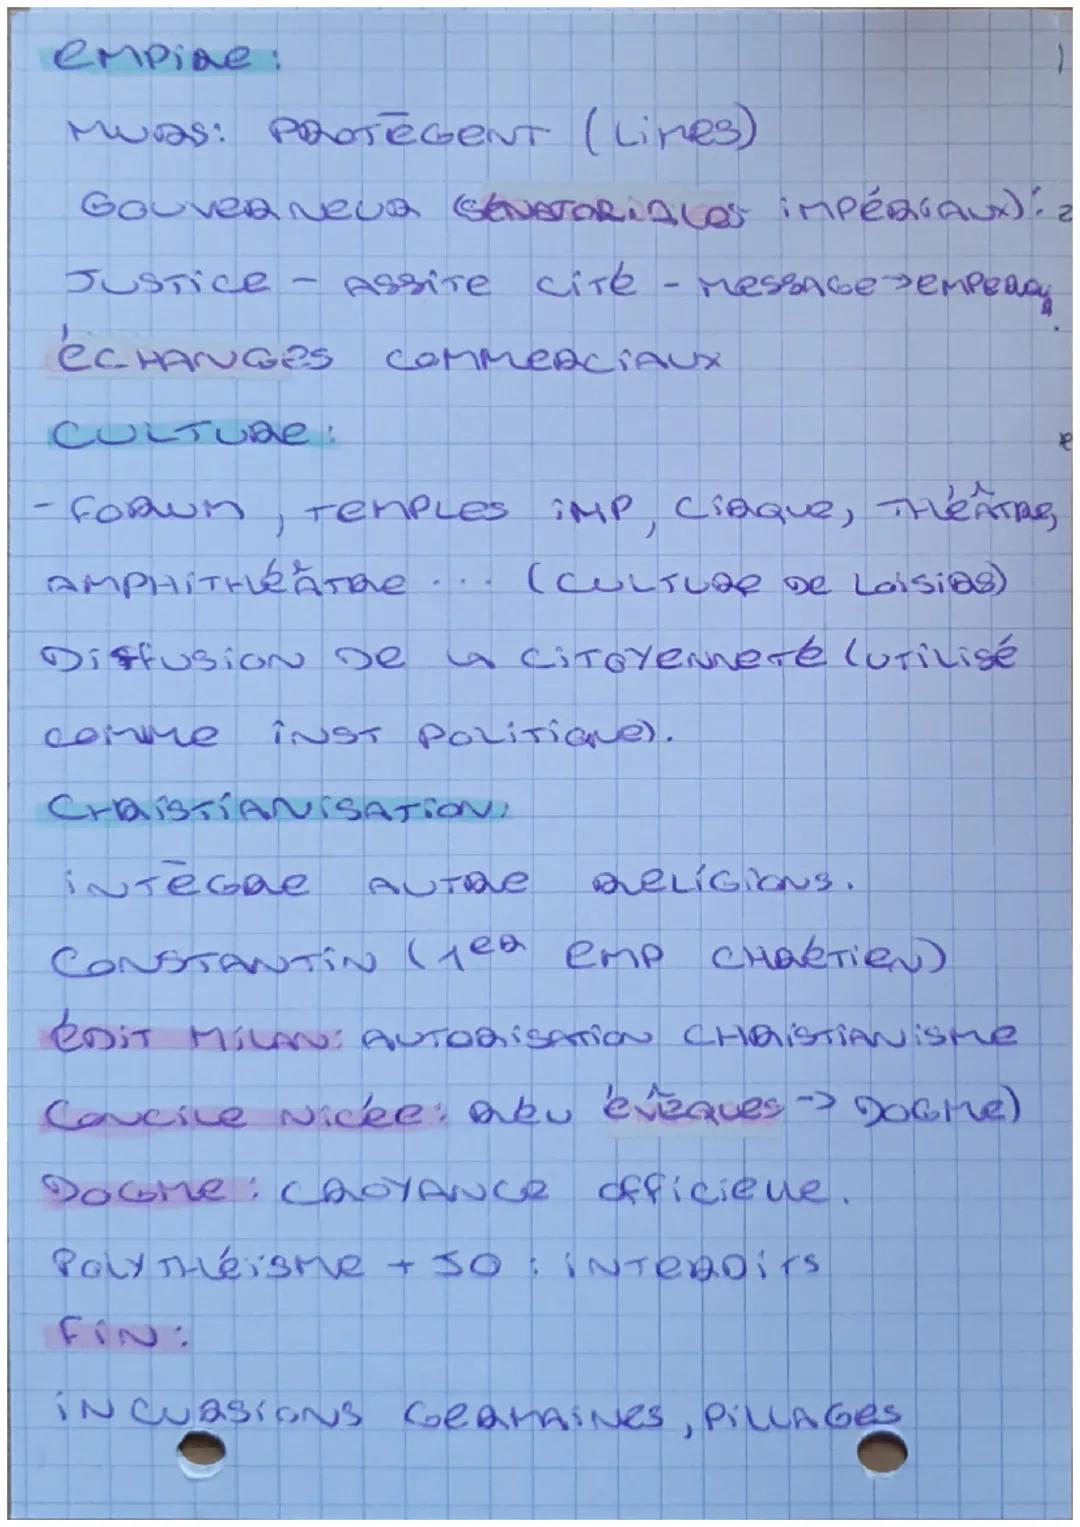 EMPIRE:
MURS: PROTÈGENT (Limes)
GOUVERNEUR (SÉNATORIALES IMPÉRIAUX):
JUSTICE - ASSITE CITÉ - MESSAGE → EMPEREUR
ÉCHANGES COMMERCIAUX
CULTURE:
- FORUM, TEMPLES IMP, CIRQUE, THÉÂTRE,
AMPHITHÉÂTRE ... (CULTURE DE LOISIRS)
DIFFUSION DE LA CITOYENNETÉ (UTILISÉ
COMME INST POLITIQUE).
CHRISTIANISATION:
INTÈGRE AUTRE RELIGIONS.
CONSTANTIN (1ER EMP CHRÉTIEN)
ÉDIT MILAN: AUTORISATION CHRISTIANISME
CONCILE NICÉE: RÉU ÉVÊQUES -> DOGME)
DOGME: CROYANCE OFFICIELLE.
POLYTHÉISME + JO: INTERDITS
FIN:
INCURSIONS GERMAINES, PILLAGES